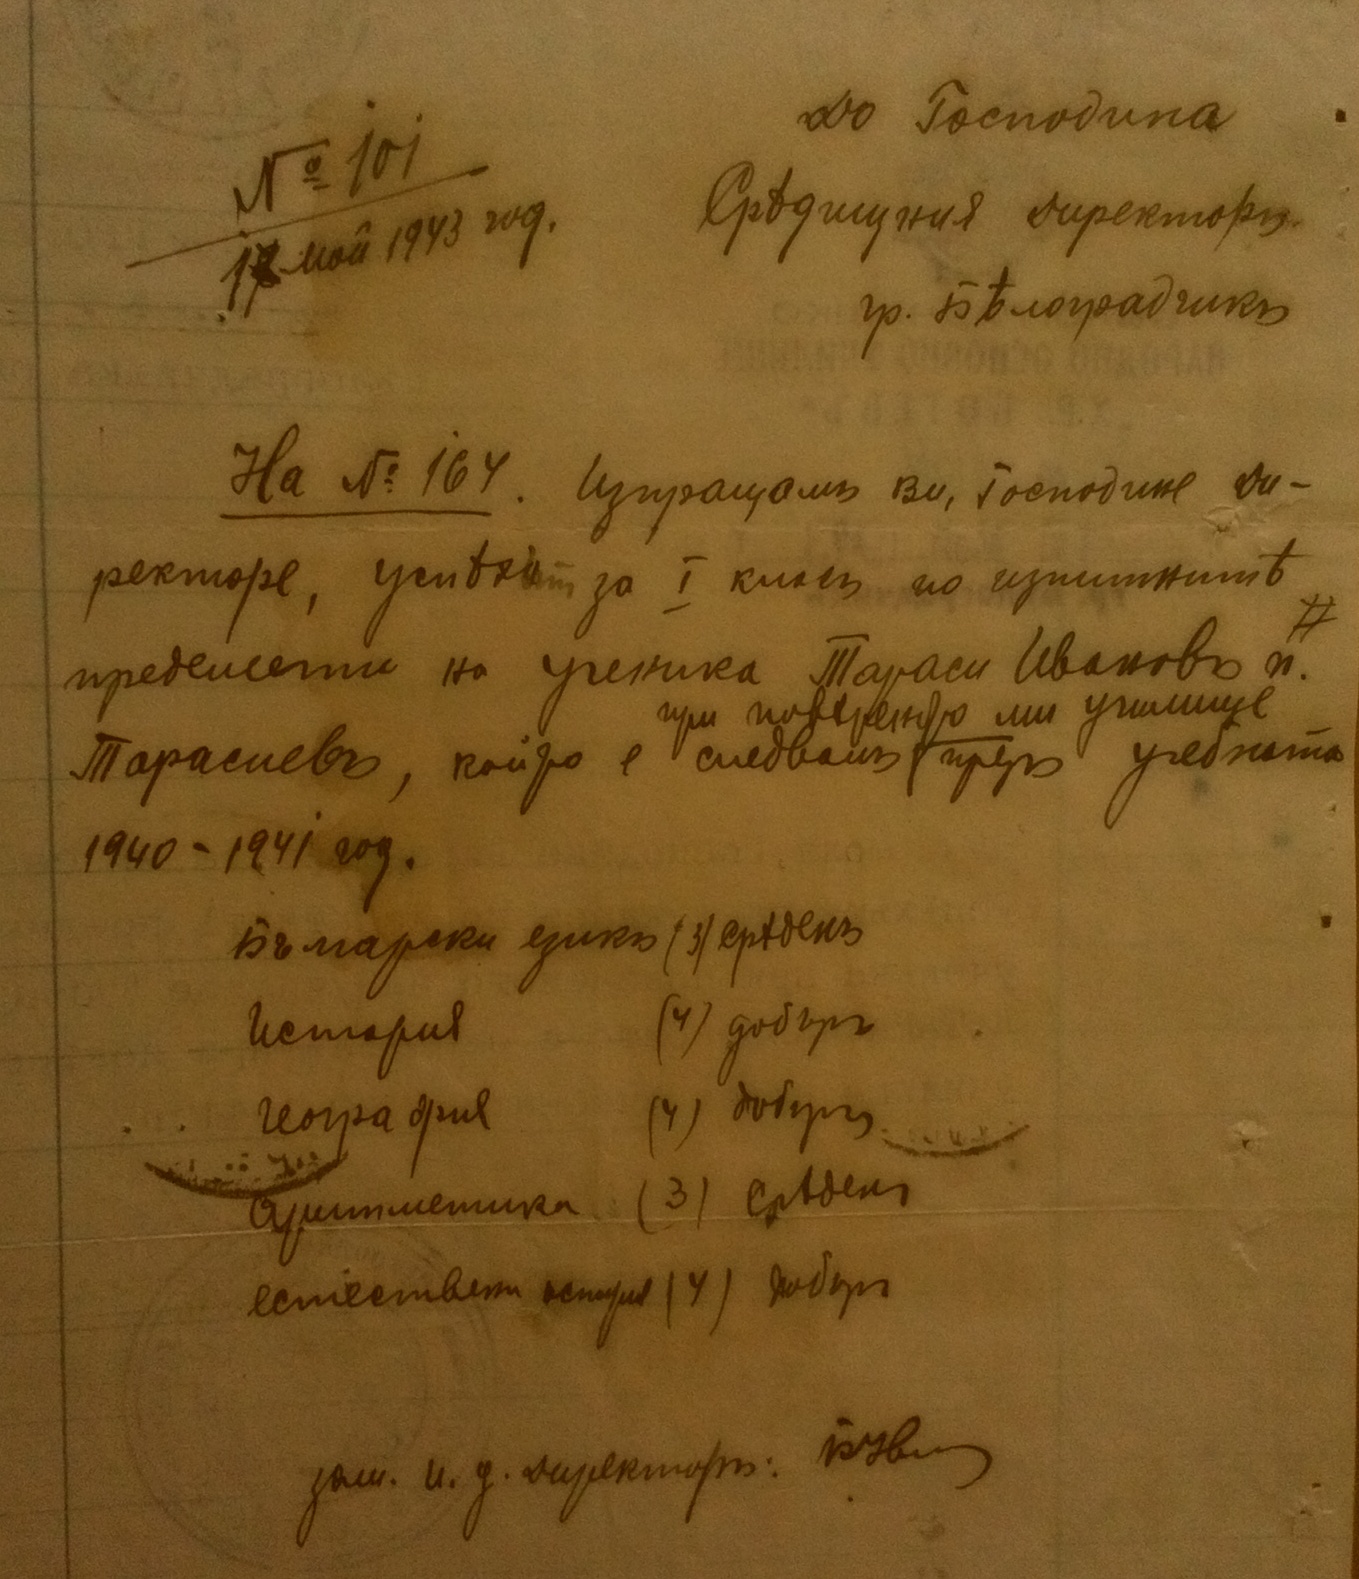 До Господина
№ 101
Срѣдищния Директоръ.
17 май 1943 год.
гр. Бѣлоградчикъ
На № 164. Изпращамъ Ви, Господине Ди-
ректоре, успѣхътъ за I класъ по изпитнитѣ
предмети на ученика Тараси Ивановъ п.
при повѣреното ми училище
Тарасиевъ, който е следвалъ презъ учебната
1940 - 1941 год.
Български езикъ (3) срѣденъ
История (4) добъръ
География (4) добъръ
Аритметика (3) Срѣденъ
Естествена история (4) добъръ
зам. и. д. Директоръ: